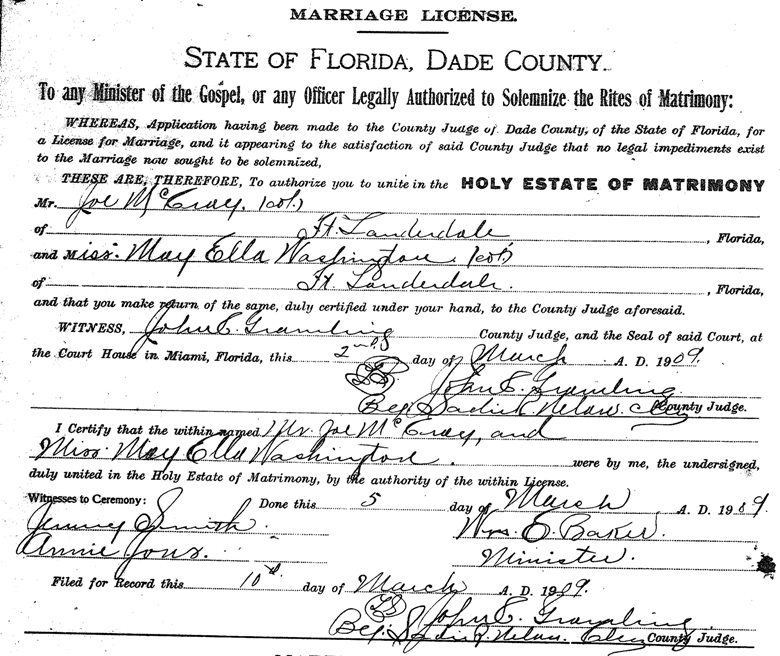 MARRIAGE LICENSE.
STATE OF FLORIDA, DADE COUNTY.
To any Minister of the Gospel, or any Officer Legally Authorized to Solemnize the Rites of Matrimony:
WHEREAS, Application having been made to the County Judge of Dade County, of the State of Florida, for
a License for Marriage, and it appearing to the satisfaction of said County Judge that no legal impediments exist
to the Marriage now sought to be solemnized,
THESE ARE, THEREFORE, To authorize you to unite in the HOLY ESTATE OF MATRIMONY
Mr. Joe McCray. (col.)
of Ft. Lauderdale, Florida,
and Miss. May Ella Washington. (col)
of Ft. Lauderdale., Florida,
and that you make return of the same, duly certified under your hand, to the County Judge aforesaid.
WITNESS, John E. Gramling County Judge, and the Seal of said Court, at
the Court House in Miami, Florida, this 2nd day of March A. D. 1909.
John E. Gramling
By County Judge.
I Certify that the within named Mr. Joe McCray, and
Miss. May Ella Washington. were by me, the undersigned,
duly united in the Holy Estate of Matrimony, by the authority of the within License.
Witnesses to Ceremony: Done this 5 day of March A. D. 1909.
Smith. Wm. E. Baker.
Annie Minister.
Filed for Record this 10 day of March A. D. 1909.
John E. Gramling
By County Judge.